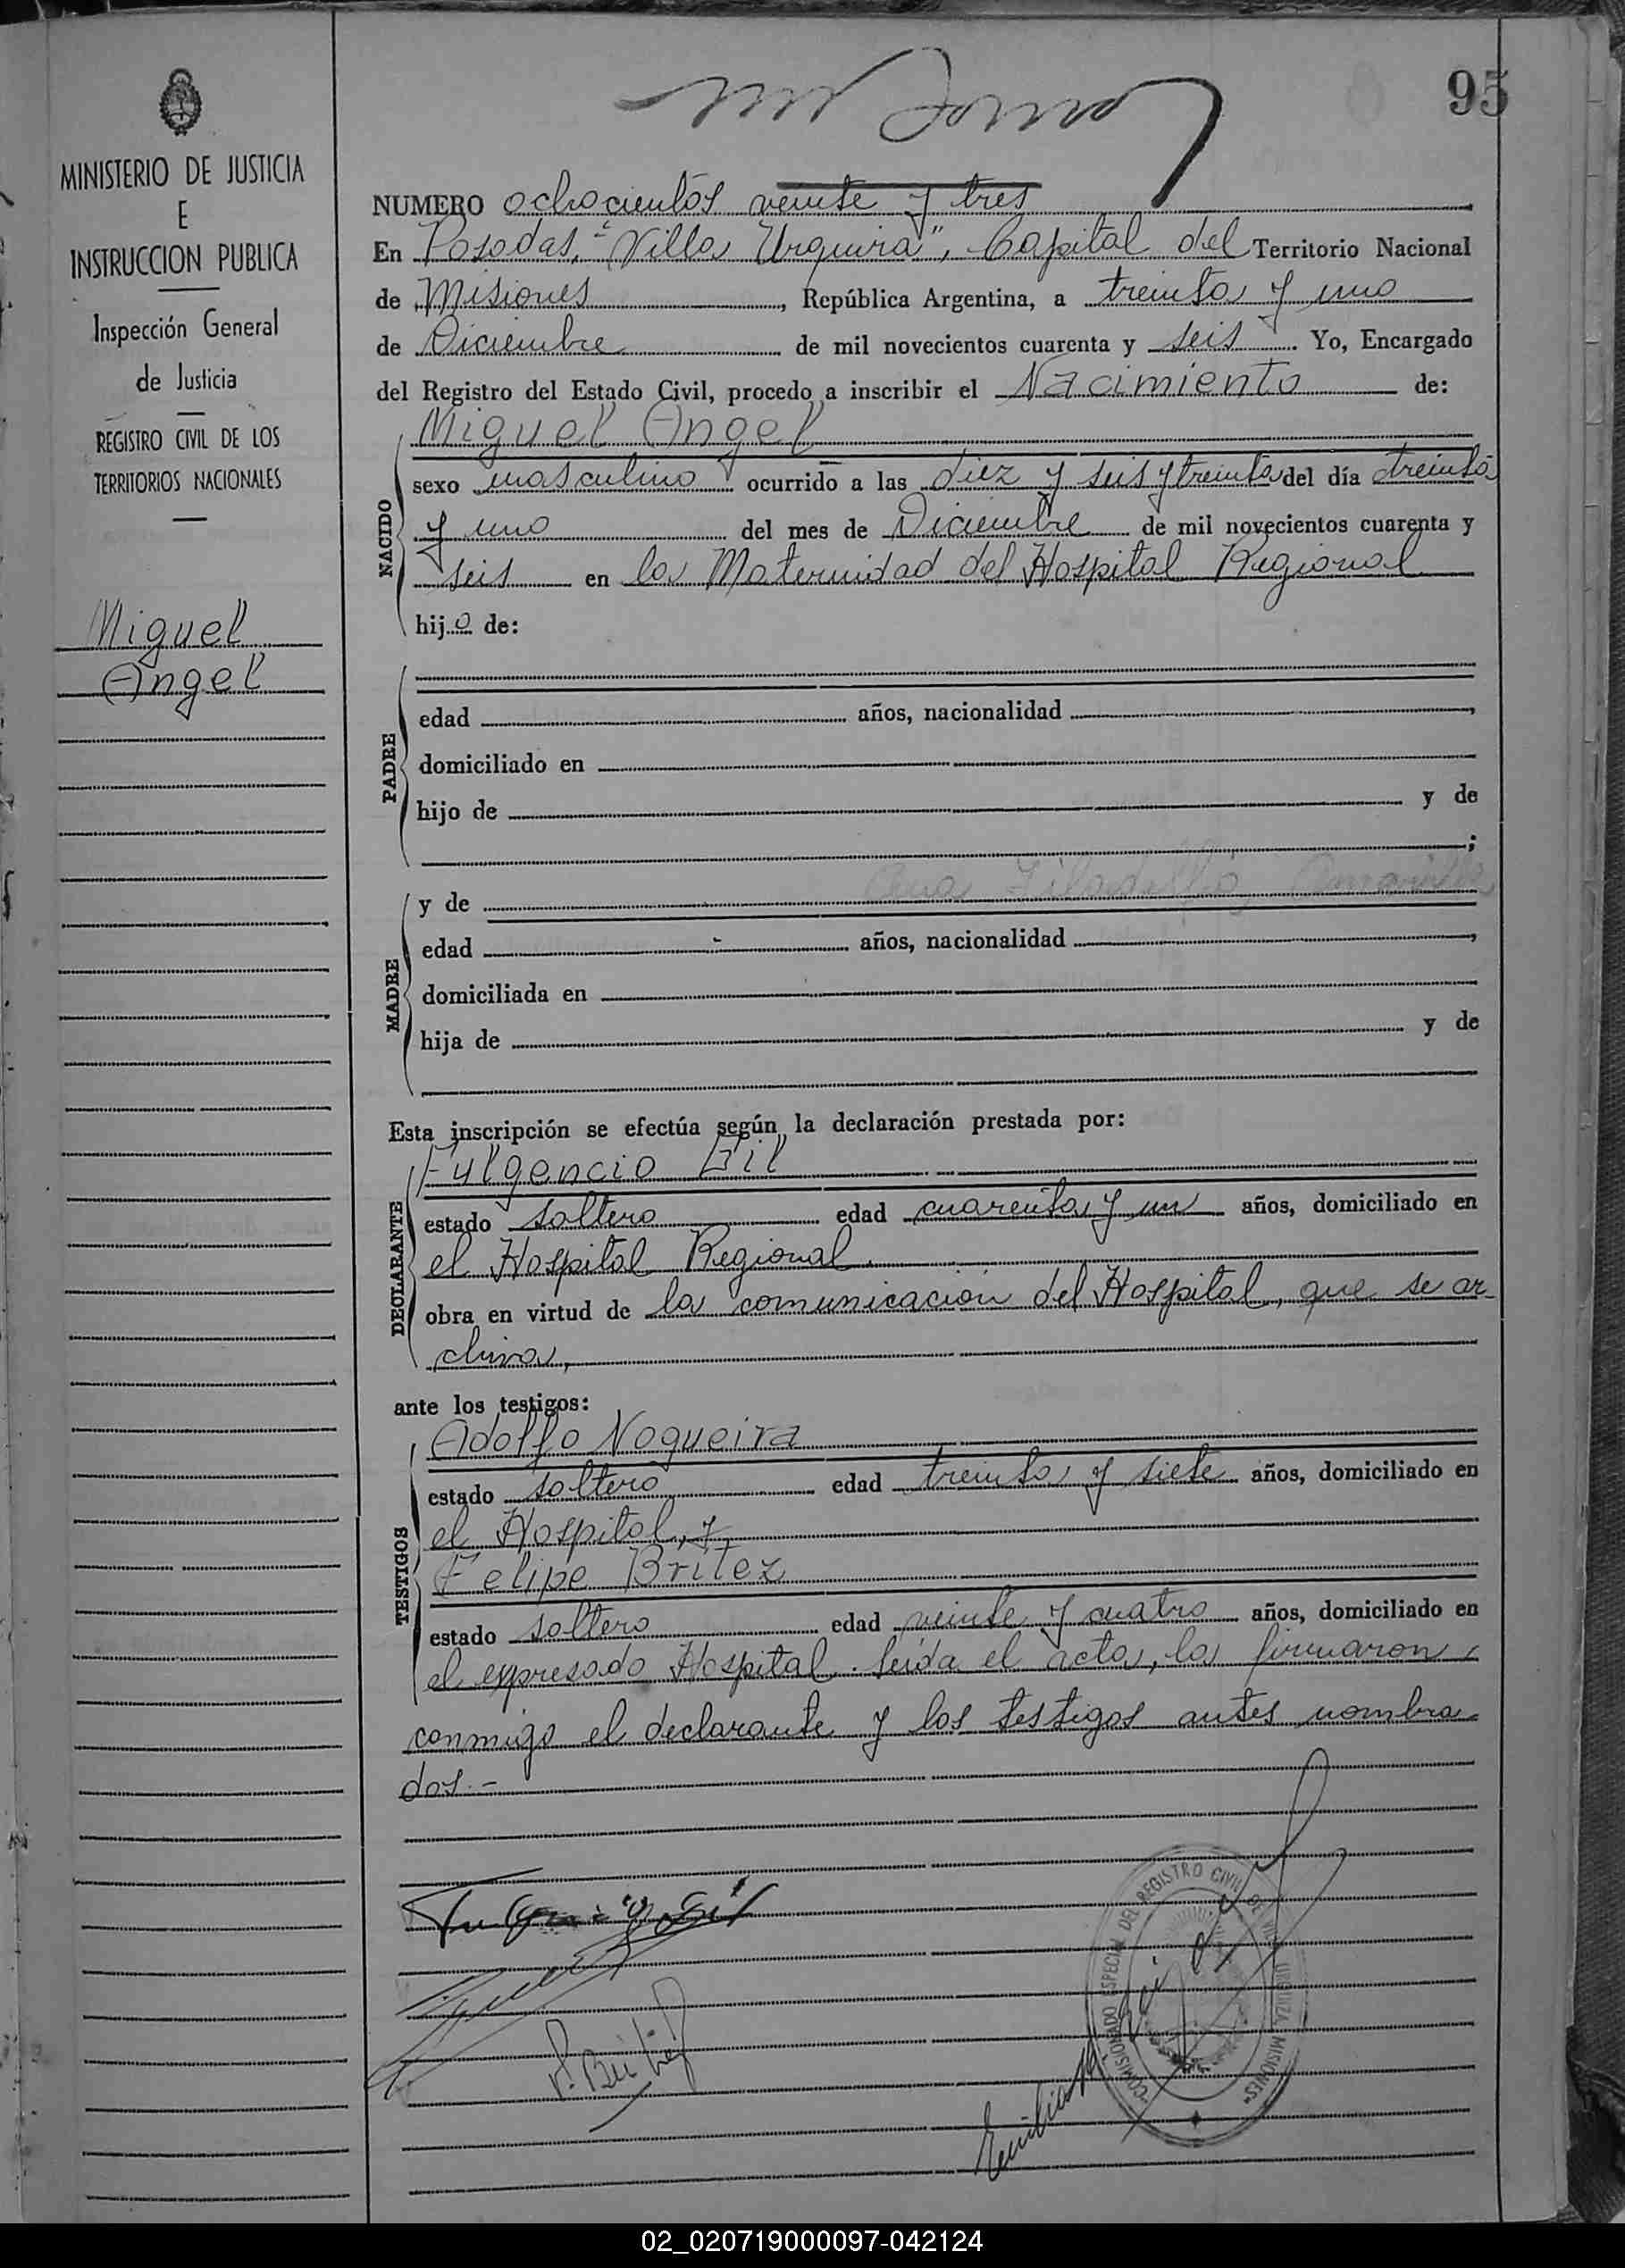 95
MINISTERIO DE JUSTICIA
E
INSTRUCCION PUBLICA
Inspección General
de Justicia
REGISTRO CIVIL DE LOS
TERRITORIOS NACIONALES
Miguel
Angel
NUMERO ochocientos veinte y tres
En Posadas, "Villa Urquiza", Capital del Territorio Nacional
de Misiones, República Argentina, a treinta y uno
de Diciembre de mil novecientos cuarenta y seis. Yo, Encargado
del Registro del Estado Civil, procedo a inscribir el Nacimiento de:
NACIDO
Miguel Angel
sexo masculino ocurrido a las diez y seis y treinta del día treinta
y uno del mes de Diciembre de mil novecientos cuarenta y
seis en la Maternidad del Hospital Regional
hijo de:
PADRE
edad años, nacionalidad ,
domiciliado en
hijo de y de
;
MADRE
y de Ana
edad años, nacionalidad ,
domiciliada en
hija de y de
Esta inscripción se efectúa según la declaración prestada por:
DECLARANTE
Fulgencio Gil
estado soltero edad cuarenta y un años, domiciliado en
el Hospital Regional.
obra en virtud de la comunicación del Hospital, que se ar-
chiva,
ante los testigos:
TESTIGOS
Adolfo Nogueira
estado soltero edad treinta y siete años, domiciliado en
el Hospital, y
Felipe Britez
estado soltero edad veinte y cuatro años, domiciliado en
el expresado Hospital. Leída el acta, la firmaron
conmigo el declarante y los testigos antes nombra-
dos.-
COMISIONADO ESPECIAL DEL REGISTRO CIVIL DE VILLA URQUIZA MISIONES
02_020719000097-042124